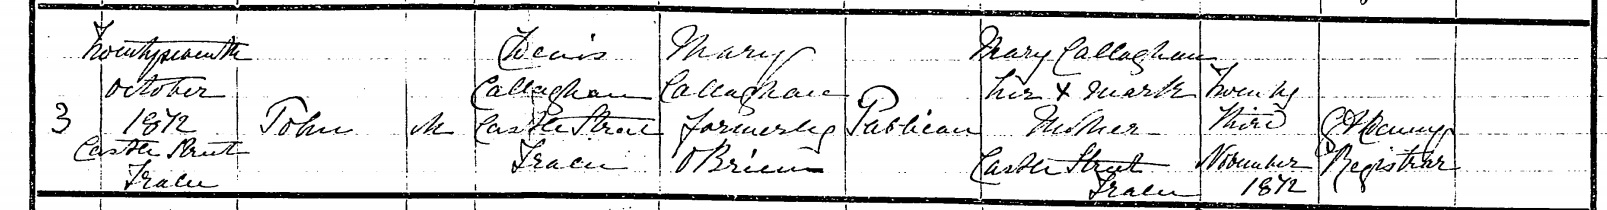 3
Twentyseventh
October
1872
Castle Street
Tralee
John
M
Denis
Callaghan
Castle Street
Tralee
Mary
Callaghan
formerly
O'Brien
Publican
Mary Callaghan
her X mark
Mother
Castle Street
Tralee
Twenty
third
November
1872
Registrar